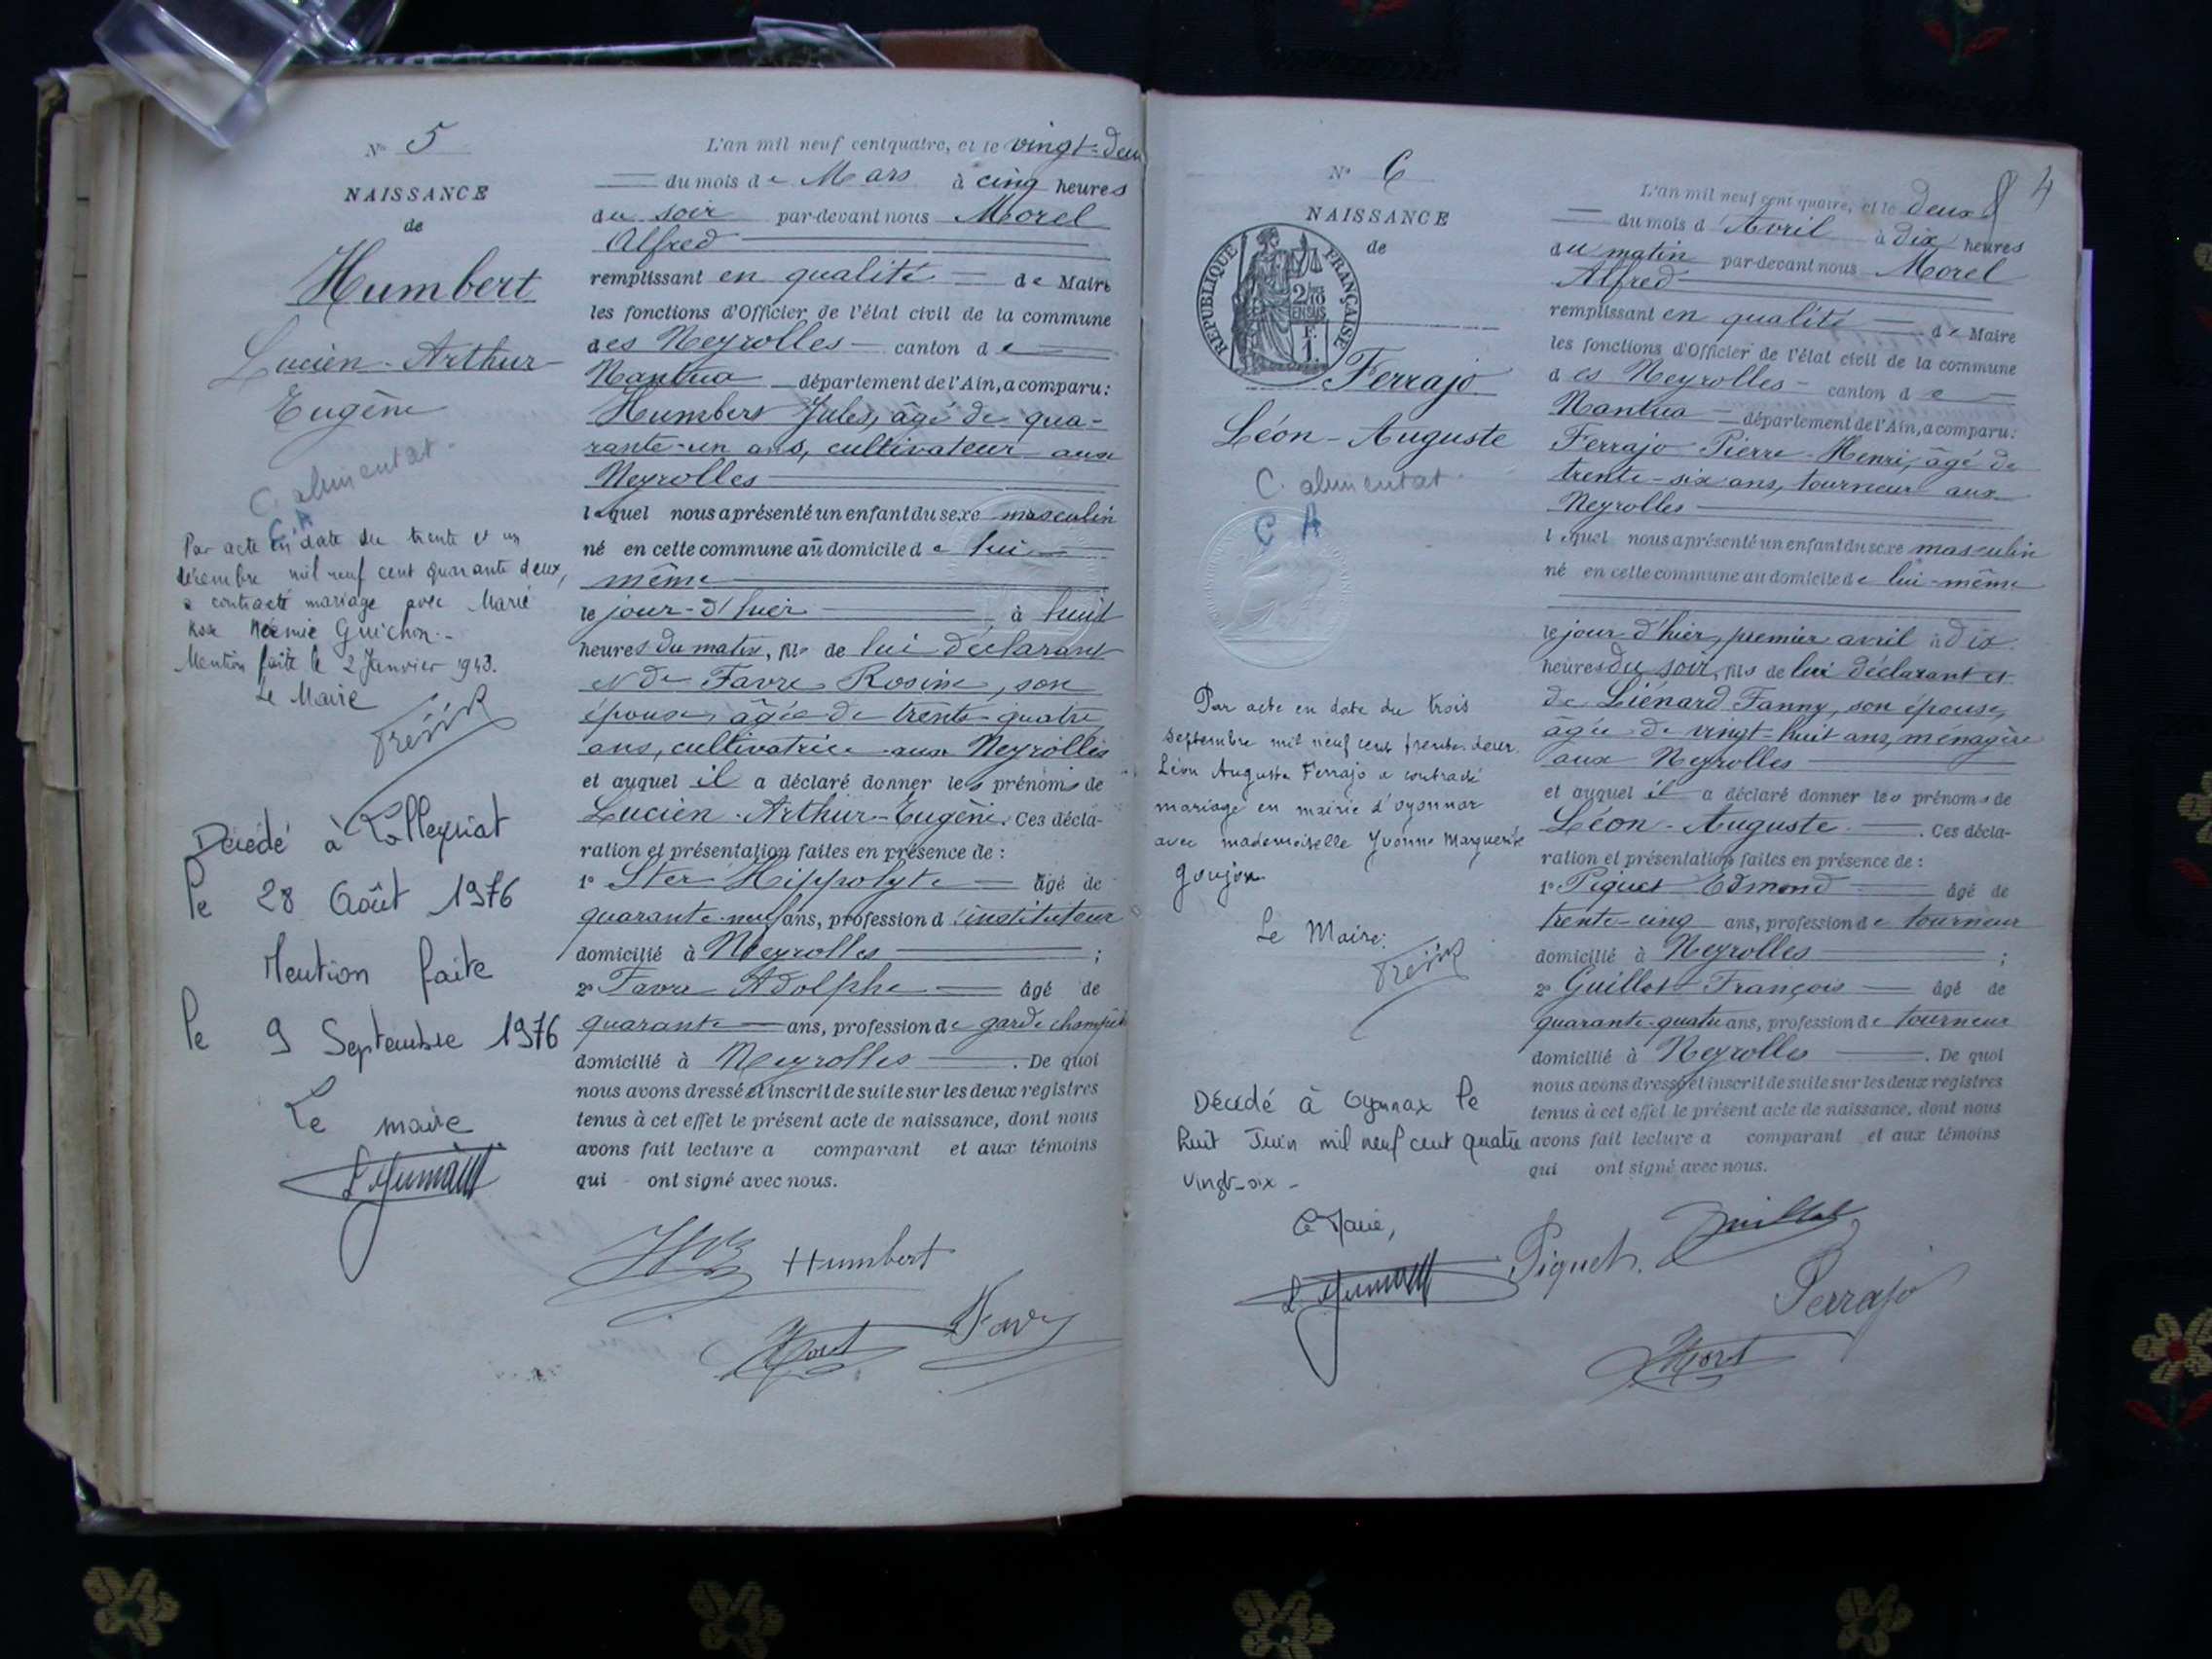 N° 5
NAISSANCE
de
Humbert
Lucien-Arthur
Eugène
C. alimentat.
C A
Par acte en date du trente et un
décembre mil neuf cent quarante deux,
a contracté mariage avec Marie
Rose Noémie Guichon.-
Mention faite le 2 Janvier 1943.
Le Maire
Décédé à Colleyriat
le 28 Août 1976
Mention faite
le 9 Septembre 1976
Le maire
L'an mil neuf cent quatre, et le vingt-deux
du mois de Mars à cinq heures
du soir par-devant nous Morel
Alfred
remplissant en qualité de Maire
les fonctions d'Officier de l'état civil de la commune
des Neyrolles canton de
Nantua département de l'Ain, a comparu:
Humbert Jules, âgé de qua-
rante-un ans, cultivateur aux
Neyrolles
lequel nous a présenté un enfant du sexe masculin
né en cette commune au domicile de lui
même
le jour-d'huir à huit
heures du matin, fils de lui déclarant
et de Favre Rosine, son
épouse, âgée de trente-quatre
ans, cultivatrice aux Neyrolles
et auquel il a déclaré donner les prénoms de
Lucien-Arthur-Eugène. Ces décla-
ration et présentation faites en présence de :
1° Ster Hippolyte âgé de
quarante-neuf ans, profession d'instituteur
domicilié à Neyrolles ;
2° Favre Adolphe âgé de
quarante ans, profession de garde champêtre
domicilié à Neyrolles . De quoi
nous avons dressé et inscrit de suite sur les deux registres
tenus à cet effet le présent acte de naissance, dont nous
avons fait lecture a comparant et aux témoins
qui ont signé avec nous.
Humbert
Favre
8 4
N° 6
NAISSANCE
de
REPUBLIQUE FRANÇAISE
2/10
EN SUS
F.
1.
Ferrajo
Léon-Auguste
C. alimentat.
C A
Par acte en date du trois
septembre mil neuf cent trente deux
Léon Auguste Ferrajo a contracté
mariage en mairie d'Oyonnax
avec mademoiselle Yvonne Marguerite
Goujon
Le Maire:
Décédé à Oyonnax le
huit Juin mil neuf cent quatre
vingt-six -
Le Maire,
L'an mil neuf cent quatre, et le deux
du mois d'Avril à dix heures
du matin par-devant nous Morel
Alfred
remplissant en qualité de Maire
les fonctions d'Officier de l'état civil de la commune
des Neyrolles canton de
Nantua département de l'Ain, a comparu:
Ferrajo Pierre-Henri, âgé de
trente-six ans, tourneur aux
Neyrolles
lequel nous a présenté un enfant du sexe masculin
né en cette commune au domicile de lui-même
le jour d'hier, premier avril à dix
heures du soir, fils de lui déclarant et
de Liénard Fanny, son épouse,
âgée de vingt-huit ans, ménagère
aux Neyrolles
et auquel il a déclaré donner les prénoms de
Léon-Auguste . Ces décla-
ration et présentation faites en présence de :
1° Piquet Edmond âgé de
trente-cinq ans, profession de tourneur
domicilié à Neyrolles ;
2° Guillot François âgé de
quarante-quatre ans, profession de tourneur
domicilié à Neyrolles . De quoi
nous avons dressé et inscrit de suite sur les deux registres
tenus à cet effet le présent acte de naissance, dont nous
avons fait lecture a comparant et aux témoins
qui ont signé avec nous.
Guillot
Piquet.
Ferrajo